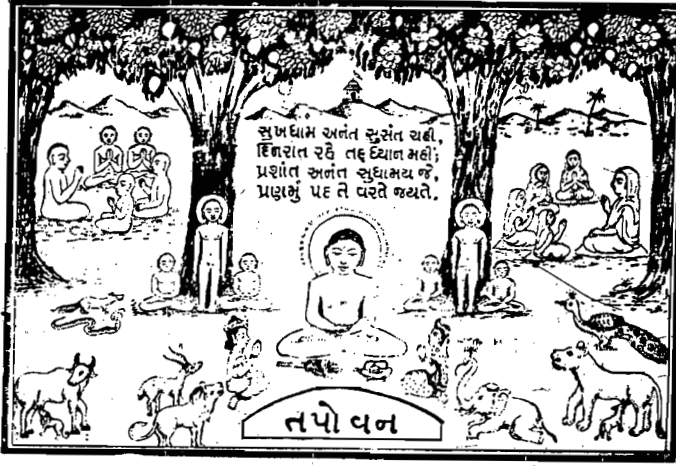 સુખધામ અનંત સુસંત ચહી,
દિનરાત રહે તદ્દ ધ્યાન મહી;
પ્રશાંત અનંત સુધામય જે,
પ્રણમું પદ તે વરતે જયતે.
તપોવન